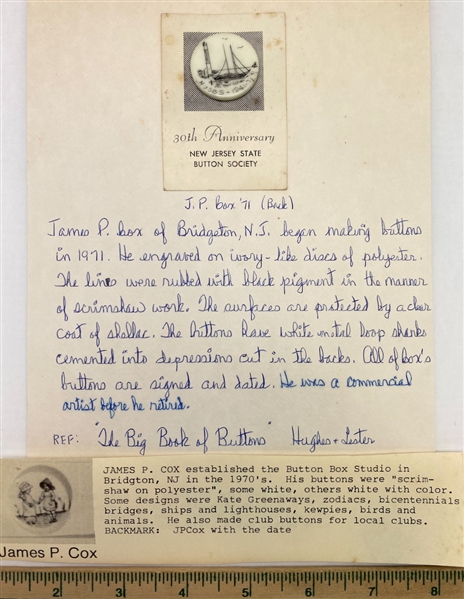 NJSBS-1941-71
30th Anniversary
NEW JERSEY STATE
BUTTON SOCIETY
J.P. Cox '71 (Back)
James P. Cox of Bridgeton, N.J. began making buttons
in 1971. He engraved on ivory-like discs of polyester.
The lines were rubbed with black pigment in the manner
of scrimshaw work. The surfaces are protected by a clear
coat of shellac. The buttons have white metal loop shanks
cemented into depressions cut in the backs. All of Cox's
buttons are signed and dated. He was a commercial
artist before he retired.
REF: "The Big Book of Buttons" Hughes + Lester
JAMES P. COX established the Button Box Studio in
Bridgton, NJ in the 1970's. His buttons were "scrim-
shaw on polyester", some white, others white with color.
Some designs were Kate Greenaways, zodiacs, bicentennials
bridges, ships and lighthouses, kewpies, birds and
animals. He also made club buttons for local clubs.
BACKMARK: JPCox with the date
James P. Cox
1 2 3 4 5 6 7 8